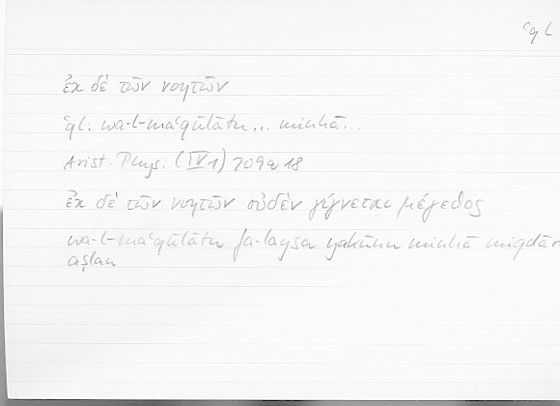 ʿql
ἐκ δὲ τῶν νοητῶν
ʿql: wa-l-maʿqūlātu... minhā...
Arist. Phys. (IV 1) 209a18
ἐκ δὲ τῶν νοητῶν οὐδὲν γίγνεται μέγεθος
wa-l-maʿqūlātu fa-laysa yakūnu minhā miqdār
aṣlan